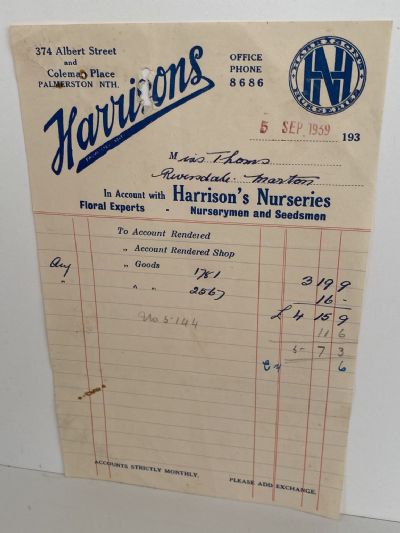 374 Albert Street
and
Coleman Place
PALMERSTON NTH.
Harrisons
OFFICE
PHONE
8686
HARRISON'S
HN
NURSERIES
5 SEP 1939 193
Miss Thoms
Riversdale. Marton
In Account with Harrison's Nurseries
Floral Experts - Nurserymen and Seedsmen
To Account Rendered
„ Account Rendered Shop
Aug „ Goods 1781 3 19 9
" „ " 2567 16 -
£ 4 15 9
No 5144 11 6
5- 7 3
6
ACCOUNTS STRICTLY MONTHLY. PLEASE ADD EXCHANGE.